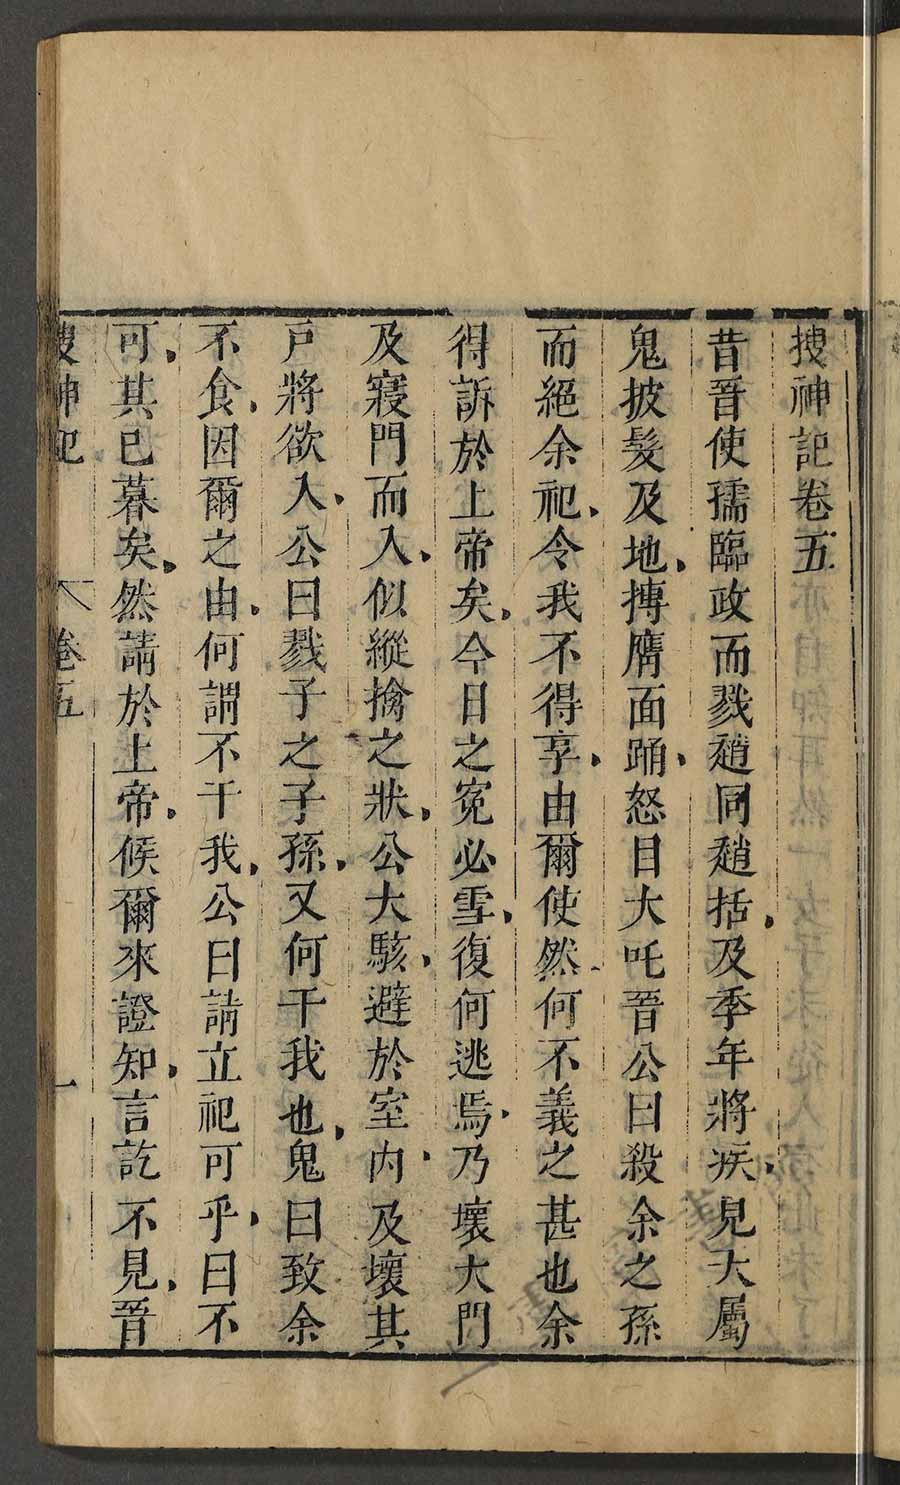 搜神記卷五
昔晉使孺臨政而戮趙同趙括及季年將疾見大屬
鬼披髮及地搏膺面踊怒目大吒晉公曰殺余之孫
而絕余祀令我不得享由爾使然何不義之甚也余
得訴於上帝矣今日之寃必雪復何逃焉乃壞大門
及寢門而入似縱擒之狀公大駭避於室内及壞其
戶將欲入公曰戮子之子孫又何干我也鬼曰致余
不食因爾之由何謂不干我公曰請立祀可乎曰不
可其已暮矣然請於上帝候爾來證知言訖不見晉
搜神記 卷五 一